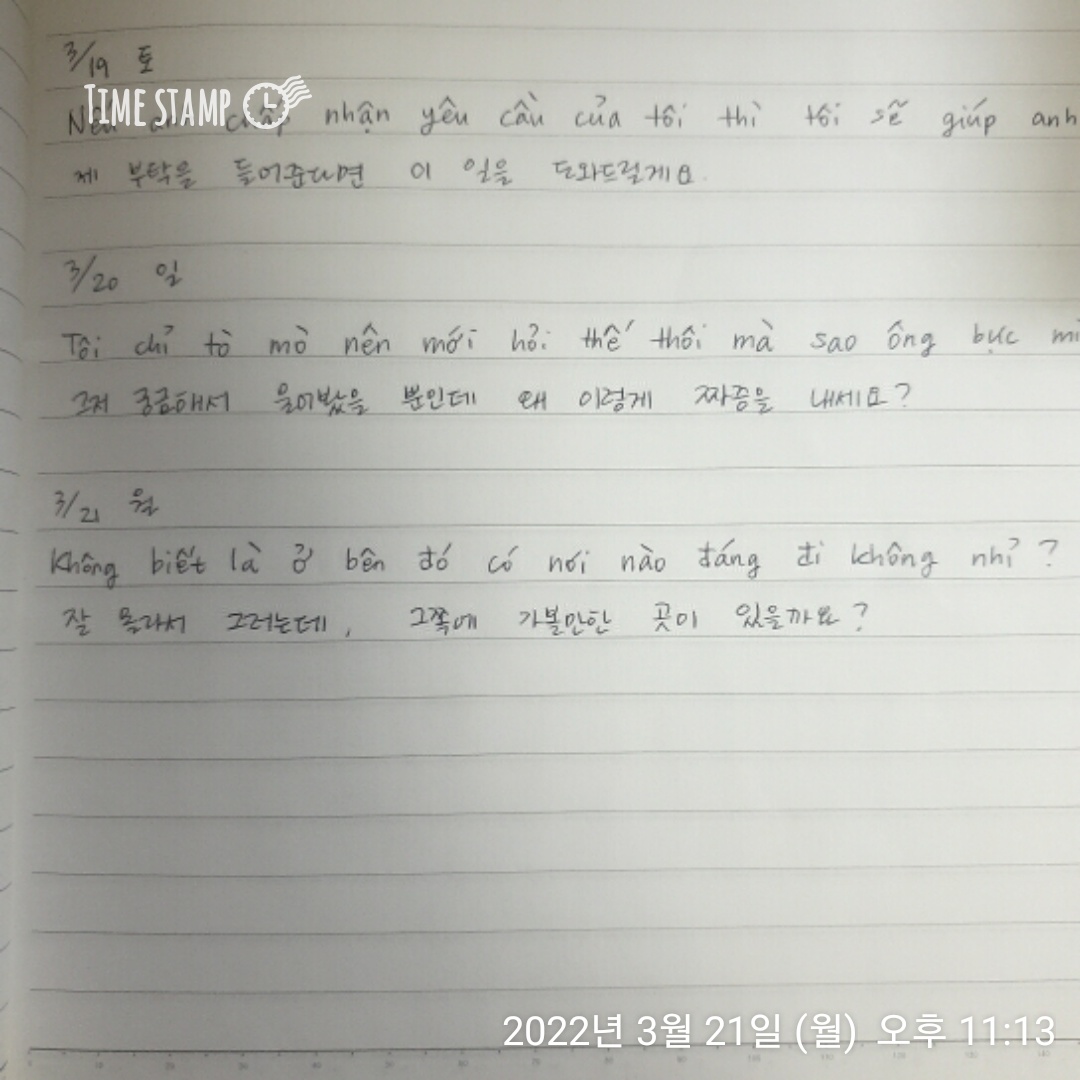 3/19 토
TIME STAMP
nhận yêu cầu của tôi thì tôi sẽ giúp anh
제 부탁을 들어준다면 이 일을 도와드릴게요.
3/20 일
Tôi chỉ tò mò nên mới hỏi thế thôi mà sao ông bực
그저 궁금해서 물어봤을 뿐인데 왜 이렇게 짜증을 내세요?
3/21 월
Không biết là ở bên đó có nơi nào đáng đi không nhỉ?
잘 몰라서 그러는데, 그쪽에 가볼만한 곳이 있을까요?
2022년 3월 21일 (월) 오후 11:13